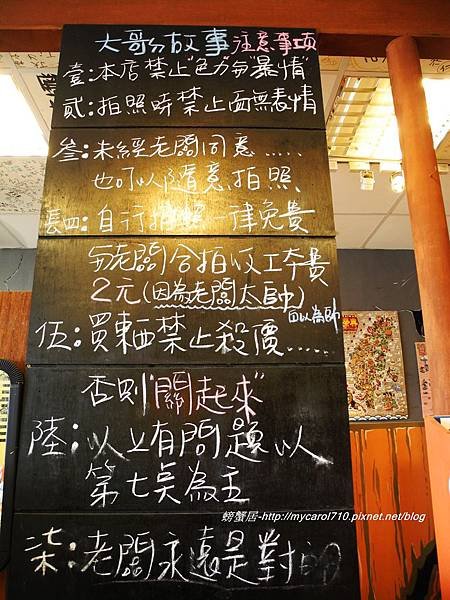 大哥ㄉ故事注意事項
壹:本店禁止"色"力ㄉ"暴情"
貳:拍照時禁止面無表情
叄:未經老闆同意.....
也可以隨意拍照、
肆:自行拍照一律免費
ㄉ老闆合拍收工本費
2元(因為老闆太帥)
自以為帥
伍:買東西禁止殺價.....
否則"關起來"
陸:以上有問題以
第七點為主
柒:老闆永遠是對的
螃蟹居-http://mycarol710.pixnet.net/blog